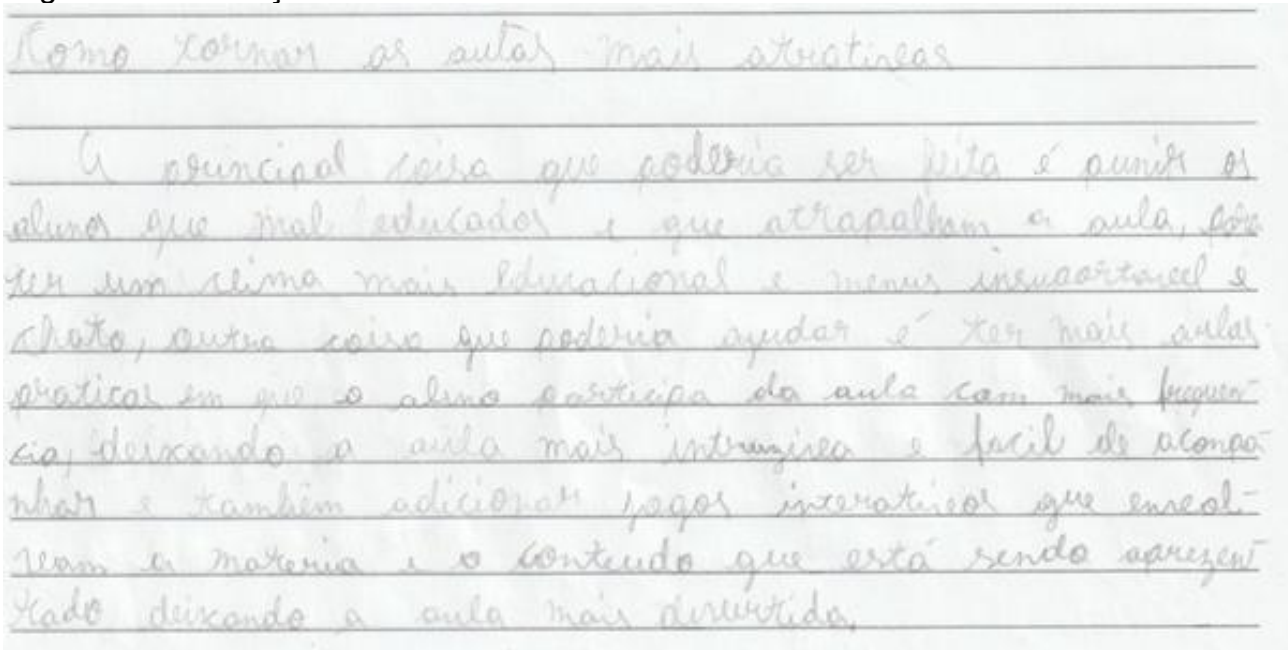 Como tornar as aulas mais atrativas
A principal coisa que poderia ser feita é punir os
alunos que mal educados e que atrapalham a aula, para
ter um clima mais educacional e menus insuportavel e
chato, outra coisa que poderia ajudar é ter mais aulas
praticas em que o aluno participa da aula com mais frequen-
cia, deixando a aula mais e facil de acompa-
nhar e também adicionar jogos interativos que envol-
vam a materia e o conteudo que está sendo aprezen-
tado deixando a aula mais divertida.